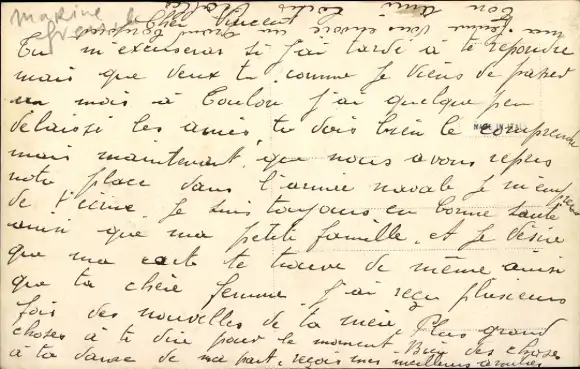 Marine
Cher Vincent
Tu m'excuseras si j'ai tardé à te repondre
mais que veux tu comme je viens de passer
un mois à Toulon j'ai quelque peu
delaissé les amis tu dois bien le comprendre
MADE IN
mais maintenant que nous avons repris
notre place dans l'armée navale je m'empresse
de t'ecrire. Je suis toujours en bonne santé
ainsi que ma petite famille, et je désire
que ma carte te trouve de même ainsi
que ta chère femme j'ai reçu plusieurs
fois des nouvelles de ta mère. Plus grand
choses à te dire pour le moment. Bien des choses
à ta dame de ma part, reçois mes meilleures amitiés
Ton ami
ma femme vous envoie un grand